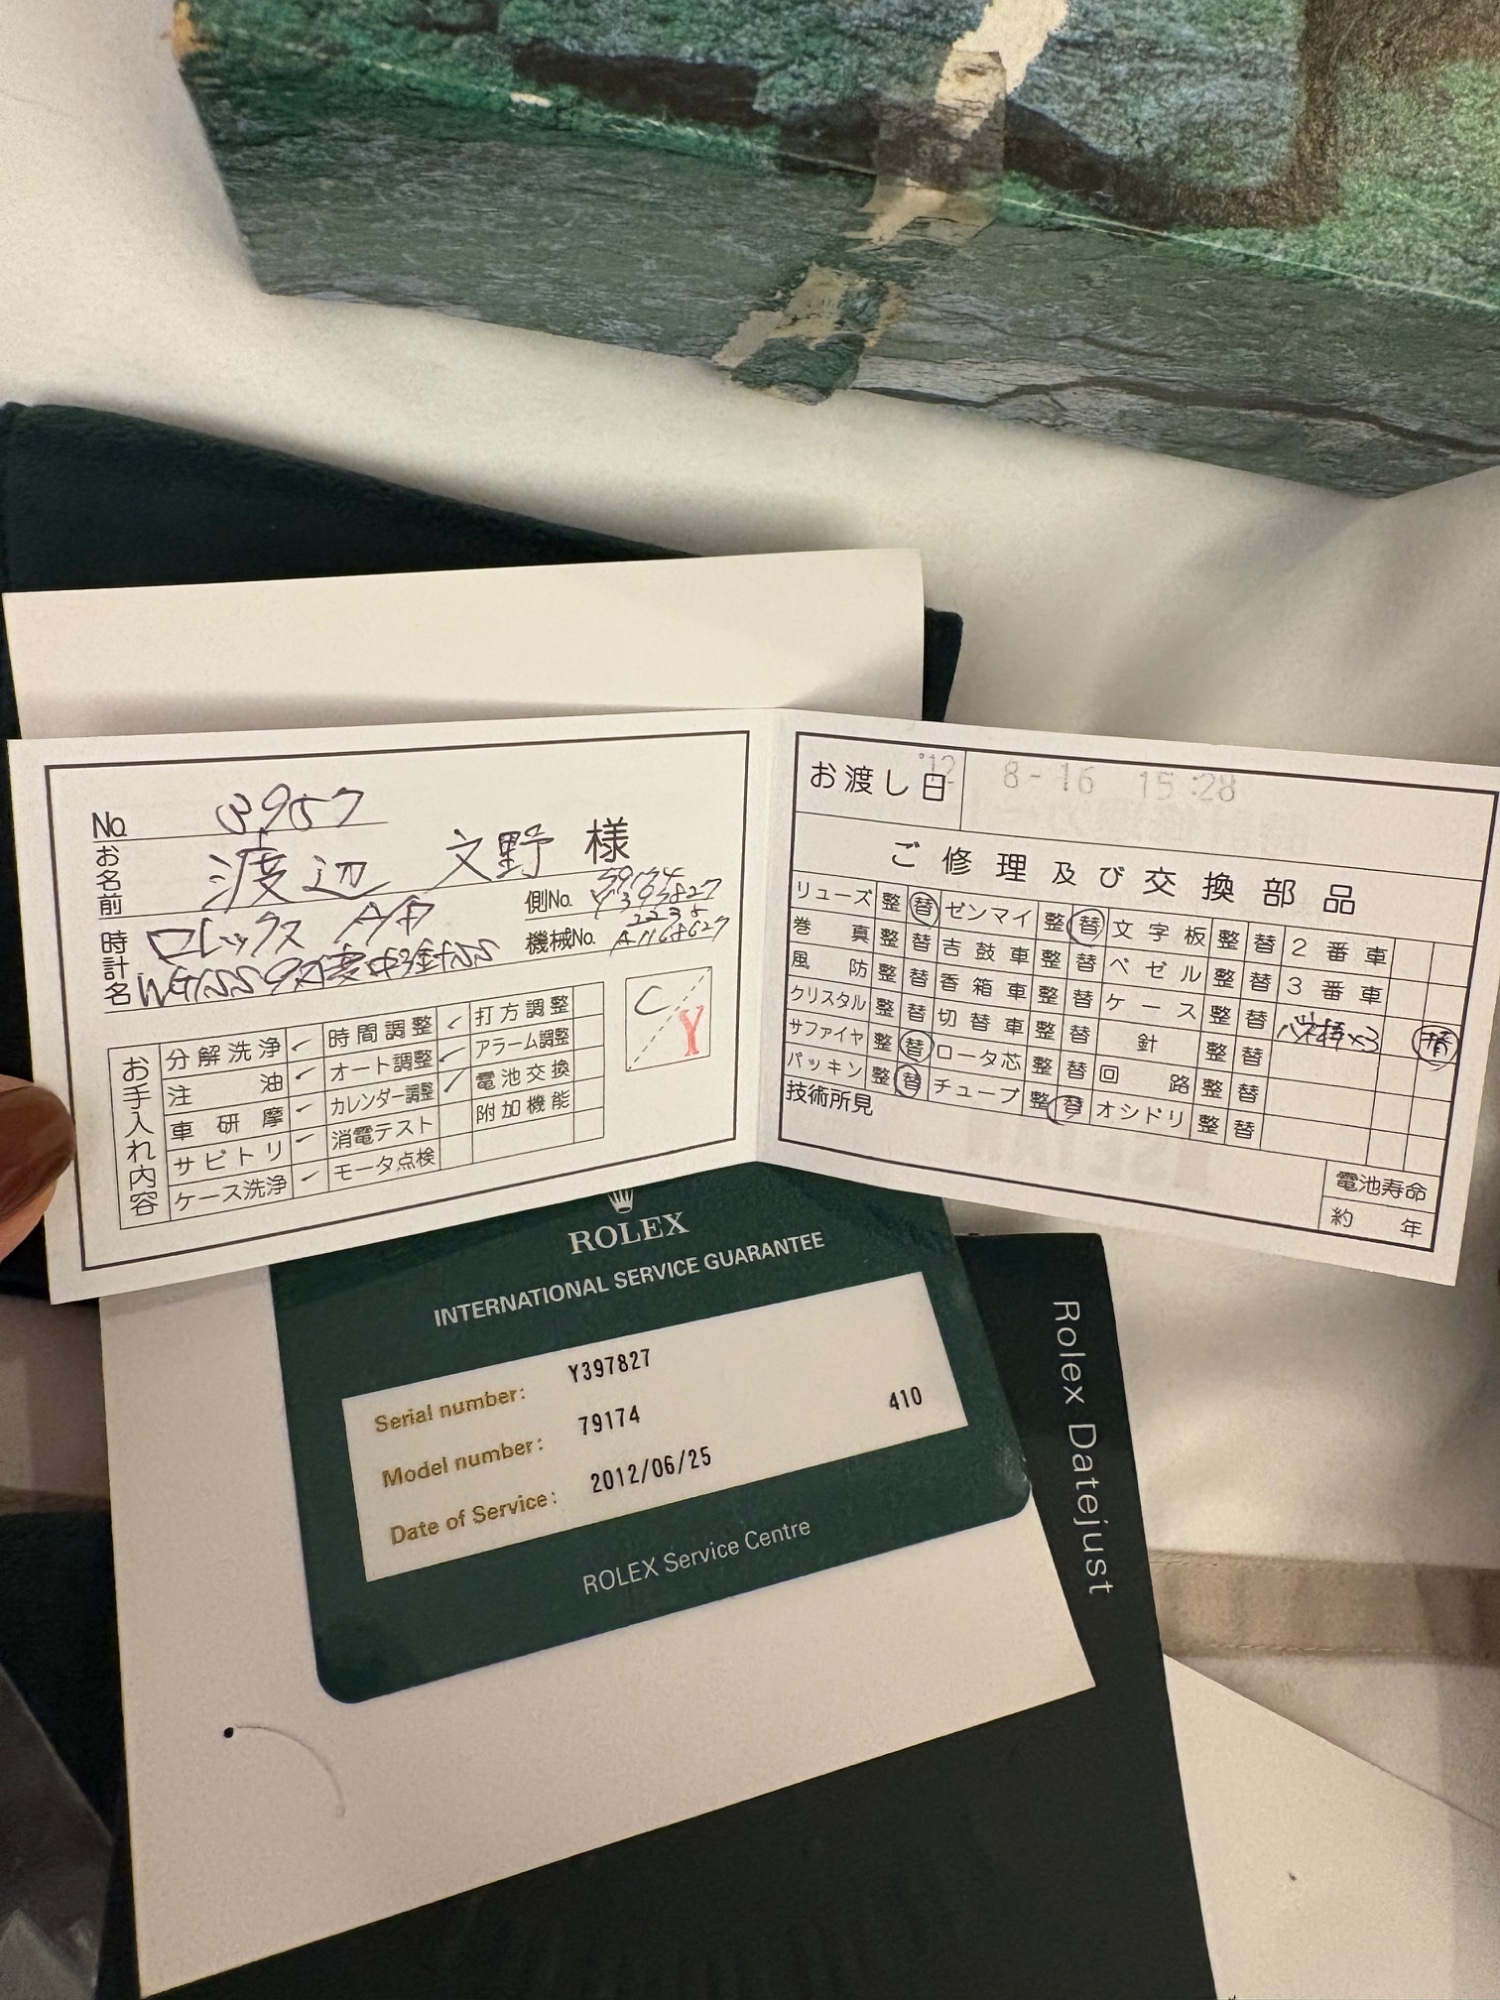 No. 3957
お名前 渡辺 文野 様
時計名 ロレックス
側No. 79174
Y397827
機械No. 2235
お手入れ内容
分解洗浄 ✓ 時間調整 ✓ 打方調整
注油 ✓ オート調整 ✓ アラーム調整
車研摩 ✓ カレンダー調整 ✓ 電池交換
サビトリ ✓ 消電テスト 附加機能
ケース洗浄 ✓ モータ点検
C
Y
お渡し日 '12 8-16 15:28
ご修理及び交換部品
リューズ 整 替 ゼンマイ 整 替 文字板 整 替 2番車
巻真 整 替 吉鼓車 整 替 ベゼル 整 替 3番車
風防 整 替 香箱車 整 替 ケース 整 替 バネ棒×3 替
クリスタル 整 替 切替車 整 替 針 整 替
サファイヤ 整 替 ロータ芯 整 替 回路 整 替
パッキン 整 替 チューブ 整 替 オシドリ 整 替
技術所見
電池寿命
約 年
ROLEX
INTERNATIONAL SERVICE GUARANTEE
Serial number: Y397827
Model number: 79174 410
Date of Service: 2012/06/25
ROLEX Service Centre
Rolex Datejust